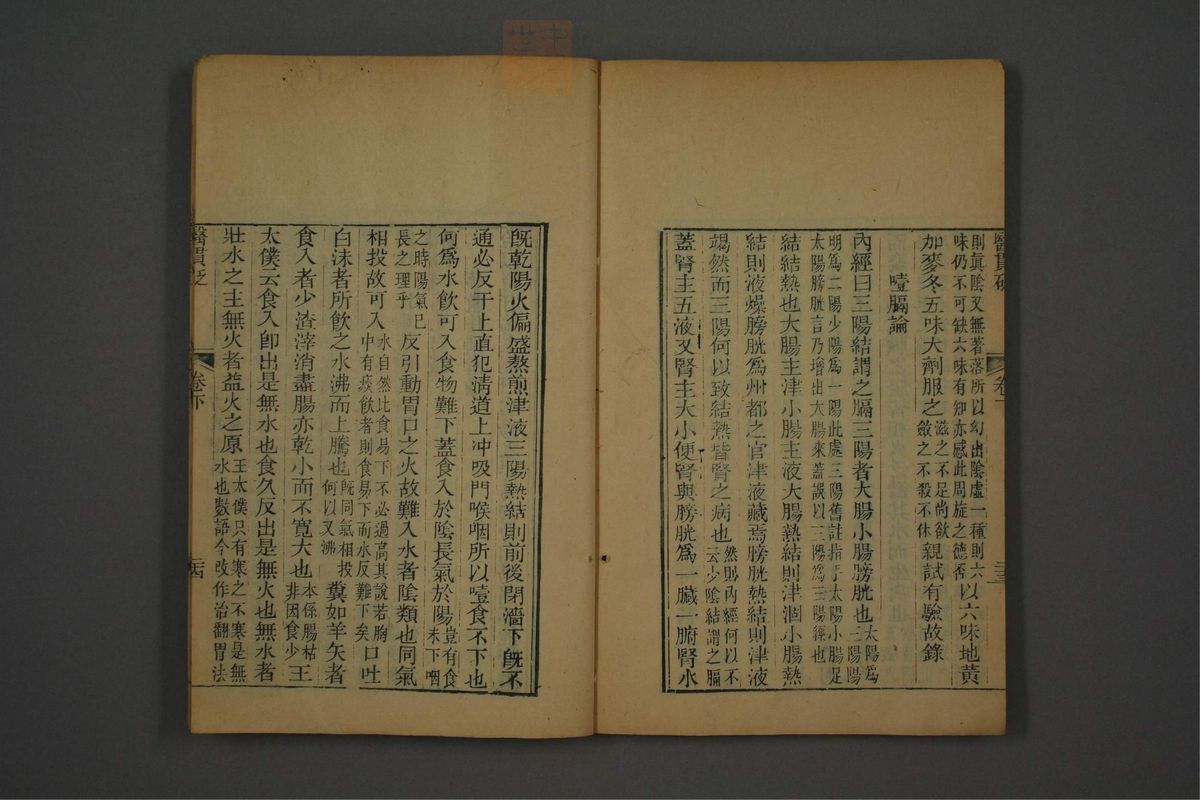 醫貫砭
卷下
二三
則眞陰又無著落所以幻出陰虛一種則六
味仍不可缺六味有知亦感此周旋之德否
以六味地黃
加麥冬五味大劑服之
滋之不足尚欲
斂之不殺不休
親試有驗故錄
噎膈論
內經曰三陽結謂之膈三陽者大腸小腸膀胱也
太陽爲
三陽陽
明爲二陽少陽爲一陽此處三陽舊註指手太陽小腸足
太陽膀胱言乃增出大腸來蓋誤以三陽爲三陽經也
結結熱也大腸主津小腸主液大腸熱結則津涸小腸熱
結則液燥膀胱爲州都之官津液藏焉膀胱熱結則津液
竭然而三陽何以致結熱皆腎之病也
然則內經何以不
云少陰結謂之膈
蓋腎主五液又腎主大小便腎與膀胱爲一臟一腑腎水
旣乾陽火偏盛熬煎津液三陽熱結則前後閉濇下旣不
通必反于上直犯淸道上冲吸門喉咽所以噎食不下也
何爲水飮可入食物難下蓋食入於陰長氣於陽
豈有食
未下咽
之時陽氣已
長之理乎
反引動胃口之火故難入水者陰類也同氣
相投故可入
水自然比食易下不必過高其說若胸
中有痰飮者則食易下而水反難下矣
口吐
白沫者所飮之水沸而上騰也
旣同氣相投
何以又沸
糞如羊矢者
食入者少渣滓消盡腸亦乾小而不寬大也
本係腸枯
非因食少
王
太僕云食入卽出是無水也食久反出是無火也無水者
壯水之主無火者益火之原
王太僕只有寒之不寒是無
水也數語今改作治翻胃法
醫貫砭
卷下
二四